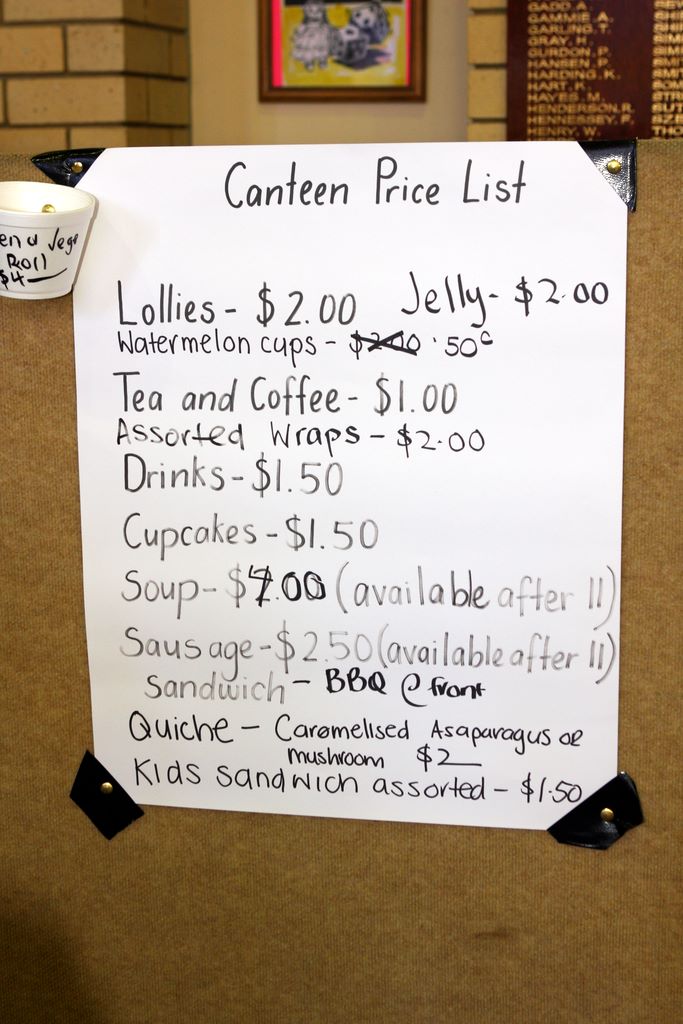 GADD. A.
GAMMIE. A.
GARLING. T.
GRAY. N.
HANSEN. P.
HARDING. K.
HART. K.
HAYES. M.
HENDERSON. R.
HENNESSEY. P.
HENRY. W.
Canteen Price List
Vege
Roll
$4
Lollies - $2.00 Jelly - $2.00
Watermelon cups - $2.00 · 50c
Tea and Coffee - $1.00
Assorted Wraps - $2.00
Drinks - $1.50
Cupcakes - $1.50
Soup - $4.00 (available after 11)
Sausage - $2.50 (available after 11)
Sandwich - BBQ @ front
Quiche - Caramelised Asaparagus or
mushroom $2
Kids sandwich assorted - $1.50